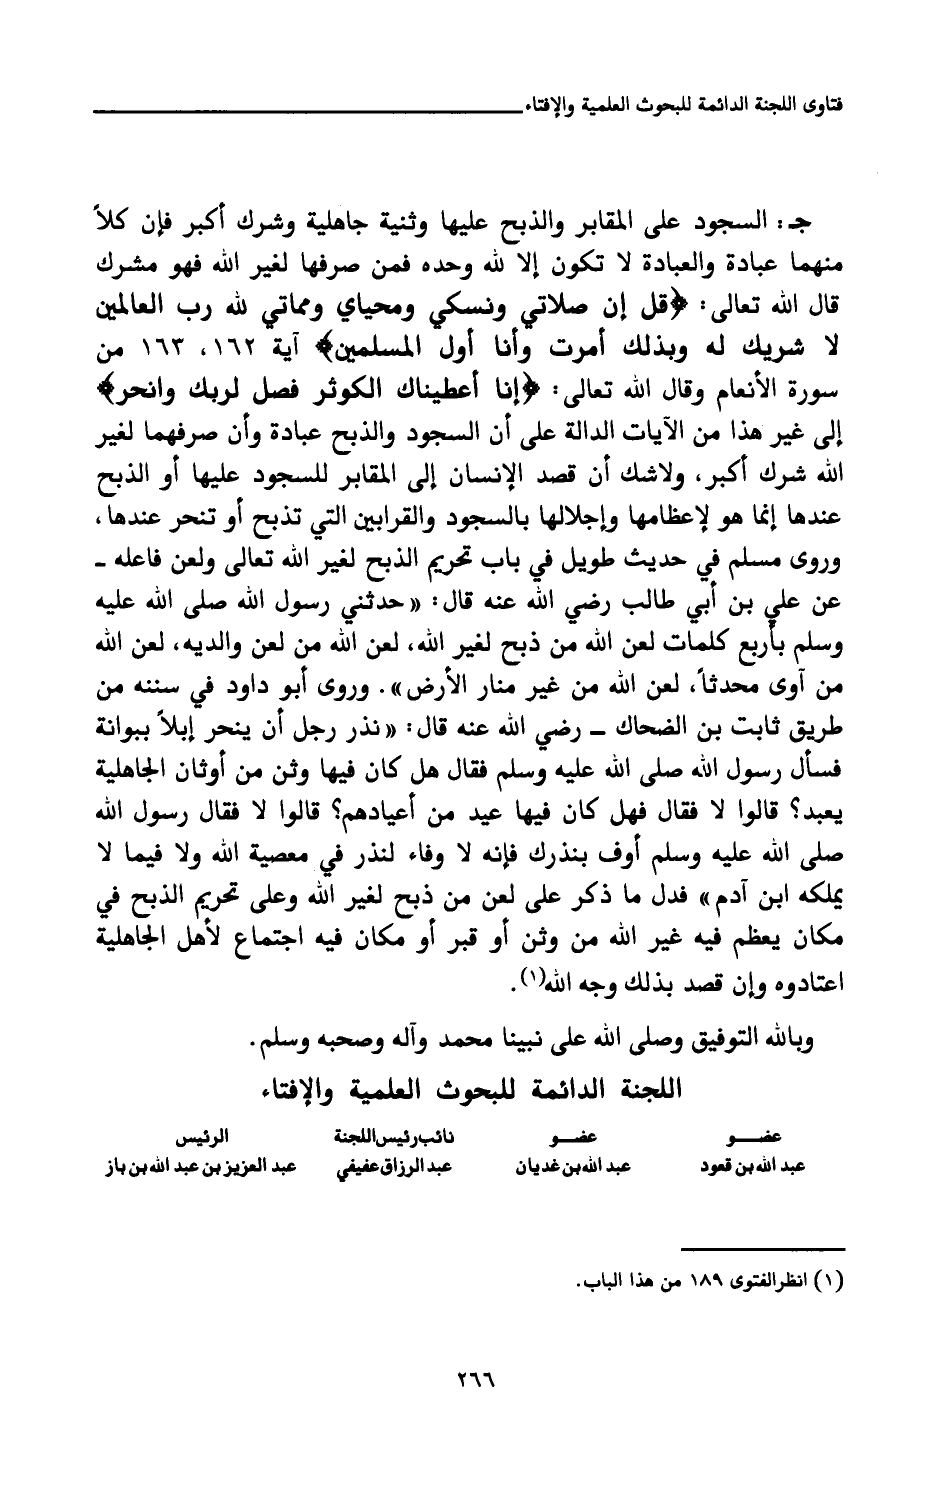 فتاوى اللجنة الدائمة للبحوث العلمية والإفتاء
جـ: السجود على المقابر والذبح عليها وثنية جاهلية وشرك أكبر فإن كلاً
منهما عبادة والعبادة لا تكون إلا لله وحده فمن صرفها لغير الله فهو مشرك
قال الله تعالى: ﴿قل إن صلاتي ونسكي ومحياي ومماتي لله رب العالمين
لا شريك له وبذلك أمرت وأنا أول المسلمين﴾ آية ١٦٢، ١٦٣ من
سورة الأنعام وقال الله تعالى: ﴿إنا أعطيناك الكوثر فصل لربك وانحر﴾
إلى غير هذا من الآيات الدالة على أن السجود والذبح عبادة وأن صرفهما لغير
الله شرك أكبر، ولاشك أن قصد الإنسان إلى المقابر للسجود عليها أو الذبح
عندها إنما هو لإعظامها وإجلالها بالسجود والقرابين التي تذبح أو تنحر عندها،
وروى مسلم في حديث طويل في باب تحريم الذبح لغير الله تعالى ولعن فاعله ـ
عن علي بن أبي طالب رضي الله عنه قال: «حدثني رسول الله صلى الله عليه
وسلم بأربع كلمات لعن الله من ذبح لغير الله، لعن الله من لعن والديه، لعن الله
من آوى محدثاً، لعن الله من غير منار الأرض». وروى أبو داود في سننه من
طريق ثابت بن الضحاك ـ رضي الله عنه قال: «نذر رجل أن ينحر إبلاً ببوانة
فسأل رسول الله صلى الله عليه وسلم فقال هل كان فيها وثن من أوثان الجاهلية
يعبد؟ قالوا لا فقال فهل كان فيها عيد من أعيادهم؟ قالوا لا فقال رسول الله
صلى الله عليه وسلم أوف بنذرك فإنه لا وفاء لنذر في معصية الله ولا فيما لا
يملكه ابن آدم» فدل ما ذكر على لعن من ذبح لغير الله وعلى تحريم الذبح في
مكان يعظم فيه غير الله من وثن أو قبر أو مكان فيه اجتماع لأهل الجاهلية
اعتادوه وإن قصد بذلك وجه الله(١).
وبالله التوفيق وصلى الله على نبينا محمد وآله وصحبه وسلم.
اللجنة الدائمة للبحوث العلمية والإفتاء
عضـــو عضـــو نائب رئيس اللجنة الرئيس
عبد الله بن قعود عبد الله بن غديان عبد الرزاق عفيفي عبد العزيز بن عبد الله بن باز
(١) انظر الفتوى ١٨٩ من هذا الباب.
٢٦٦